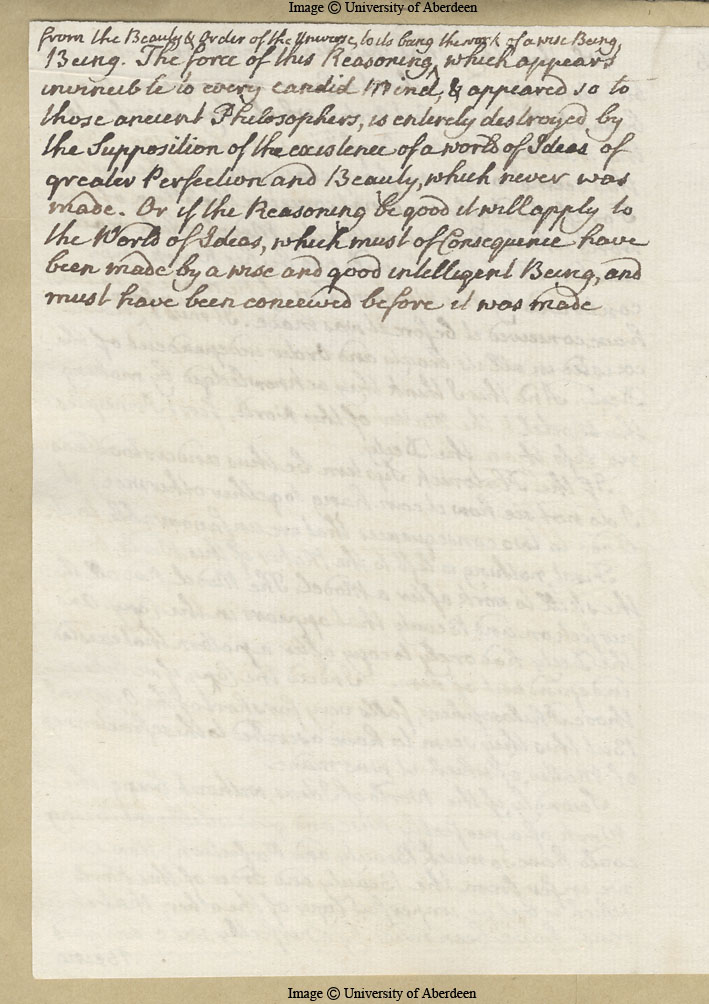 Image © University of Aberdeen
from the Beauty & Order of the Universe, to its being the work of a wise Being,
Being. The force of this Reasoning, which appears
invincible to every candid Mind, & appeared so to
those ancient Philosophers, is entirely destroyed by
the Supposition of the existence of a world of Ideas of
greater Perfection and Beauty, which never was
made. Or if the Reasoning be good it will apply to
the World of Ideas, which must of Consequence have
been made by a wise and good intelligent Being, and
must have been conceived before it was made
Image © University of Aberdeen